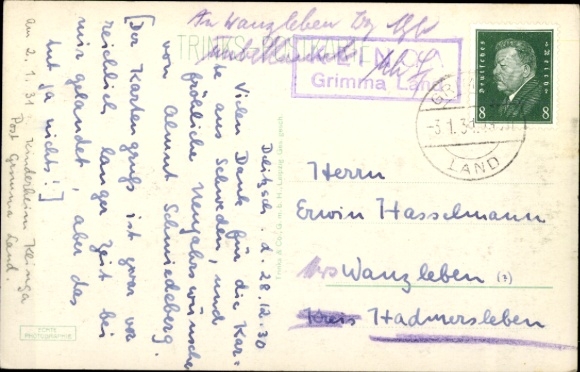 An Wanzleben Bz Mgb
TRINKS-POSTKARTE
KLEINGA
Grimma Land
Deutsches Reich
8 8
GRIMMA
-3.1.31
LAND
Delitzsch. d. 28.12.30
Vielen Dank für die Kar=
te aus Schweden, und
fröhliche Neujahrswünsche
von Almut Schmiedeberg.
[Der Kartengruß ist zwar vor
reichlich langer Zeit bei
mir gelandet, aber das
tut ja nichts!]
am 2.1.31 Kinderheim Kleinga
Post Grimma Land.
Trinks & Co. G.m.b.H. Leipzig
Herrn
Erwin Hasselmann
Wanzleben (?)
Kreis Hadmersleben